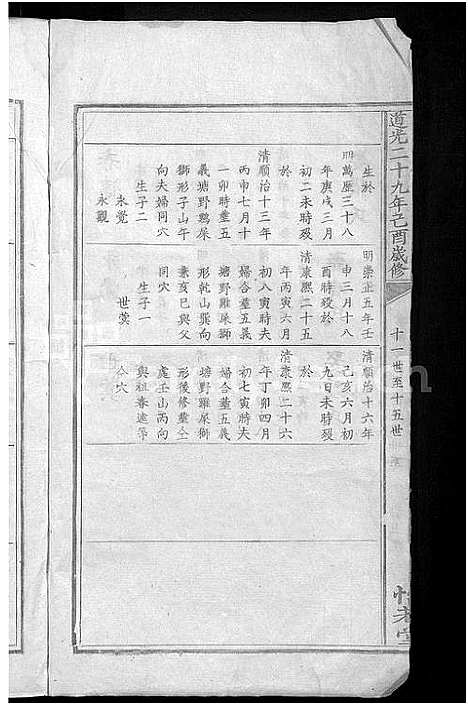 道光二十九年己酉歲修
十一世至十五世
生於
明萬歷三十八
年庚戌三月
初二未時歿
於
清順治十三年
丙申七月十
一卯時葬五
義塘野鷄屎
獅形子山午
向夫婦同穴
生子二
永覺
永觀
明崇正五年壬
申三月十八
酉時歿於
清康熙二十五
年丙寅六月
初八寅時夫
婦合葬五義
塘野雞屎獅
形乾山巽向
兼亥巳與父
同穴
生子一
世
清順治十六年
己亥六月初
九日未時歿
於
清康熙二十六
年丁卯四月
初七寅時夫
婦合葬五義
塘野雞屎獅
形後修葬仝
處壬山丙向
與祖春遮等
仝穴